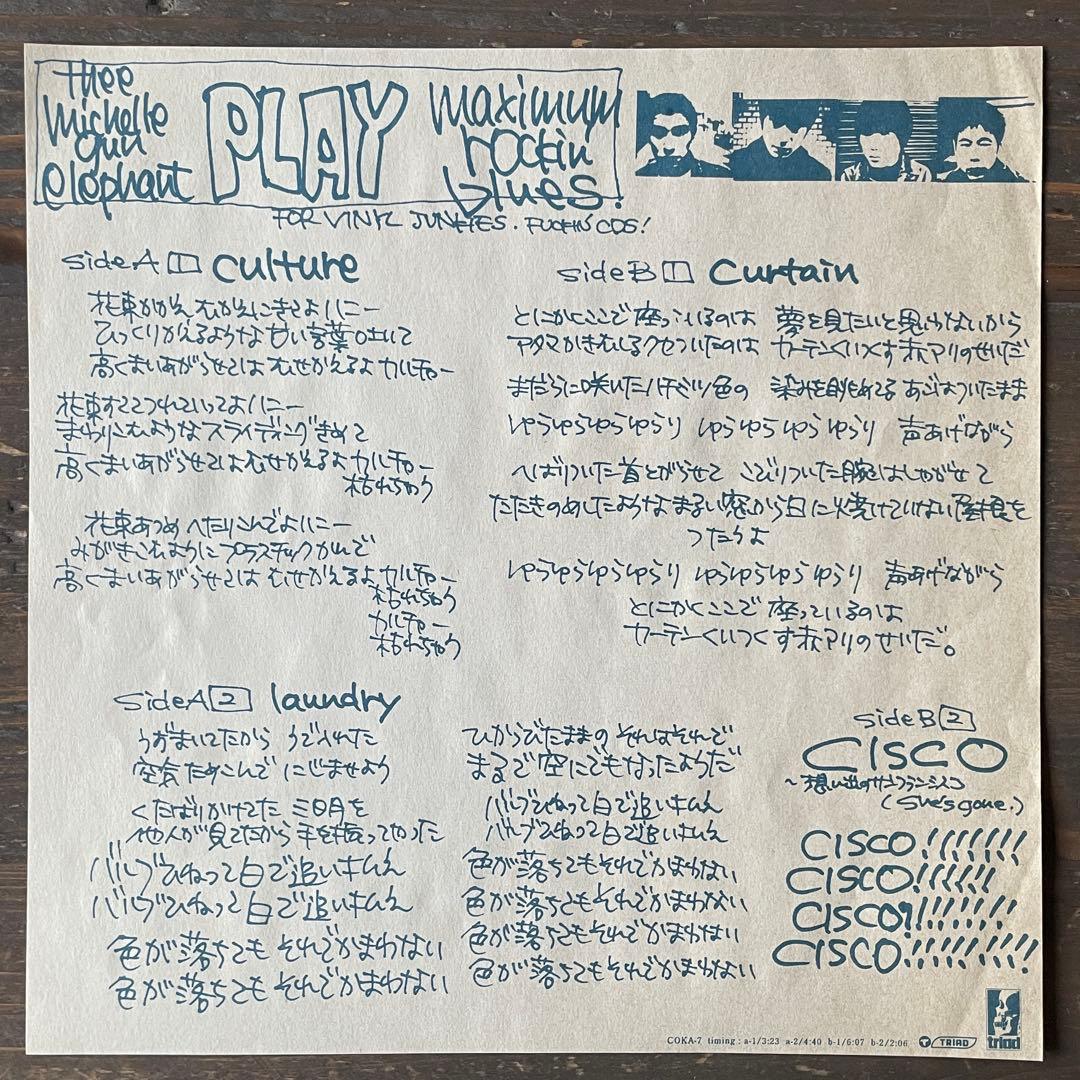 thee
michelle
gun
elephant
PLAY
maximum
rockin
blues!
FOR VINYL JUNKIES. FUCKIN' CDS!
side A 1 culture
花束かかえ むかえにきてよハニー
ひっくりかえるような 甘い言葉 吐いて
高くまいあがらせては むせかえるよ カルチャー
花束すててつれていってよハニー
まわりこむようなスライディングきめて
高くまいあがらせては むせかえるよ カルチャー
枯れちゅう
花束あつめ へたりこんでよハニー
みがきこむようにプラスチックかんで
高くまいあがらせては むせかえるよ カルチャー
枯れちゅう
カルチャー
枯れちゅう
side A 2 laundry
うずまいてたから うでいれた
空気ためこんで にじませよう
くたばりかけてた 三日月を
他人が見てたから 手を振ってやった
バルブひねって白で追いキムえ
バルブひねって白で追いキムえ
色が落ちても それでかまわない
色が落ちても それでかまわない
ひからびたままの それはそれで
まるで空にでもなったようだ
バルブひねって白で追いキムえ
バルブひねって白で追いキムえ
色が落ちてもそれでかまわない
色が落ちてもそれでかまわない
色が落ちてもそれでかまわない
色が落ちてもそれでかまわない
side B 1 curtain
とにかくここで 座っているのは 夢を見たいと思わないから
アタマかきむしるクセついたのは カーテンくいつくす赤アリのせいだ
まだらに咲いたハチミツ色の 染みを眺めてる あごはついたまま
ゆらゆらゆらゆらり ゆらゆらゆらゆらり 声あげながら
へばりついた首とがらせて こびりついた腕はしゃがせて
たたきのめしたような まるい窓から 日に焼けていない 屋根を
つたうよ
ゆらゆらゆらゆらり ゆらゆらゆらゆらり 声あげながら
とにかくここで 座っているのは
カーテンくいつくす赤アリのせいだ。
side B 2
CISCO
～想い出のサンフランシスコ
(she's gone.)
CISCO!!!!!!!
CISCO!!!!!!
CISCO!!!!!!!
CISCO!!!!!!!!!
COKA-7 timing : a-1/3:23 a-2/4:40 b-1/6:07 b-2/2:06
TRIAD
triad